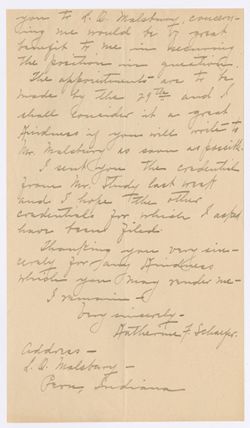 you to L. O. Malsbury, concern-
ing me would be of great
benefit to me in securing
the position in question.
The appointments are to be
made by the 29th and I
shall consider it a great
kindness if you will write to
Mr. Malsbury as soon as possible.
I sent you the credential
from Mr. Study last week
and I hope the other
credentials for which I asked
have been filed.
Thanking you very sin-
cerely for any kindness
which you may render me—
I remain—
Very sincerely—
Katherine F. Schaefer.
Address—
L. O. Malsbury—
Peru, Indiana